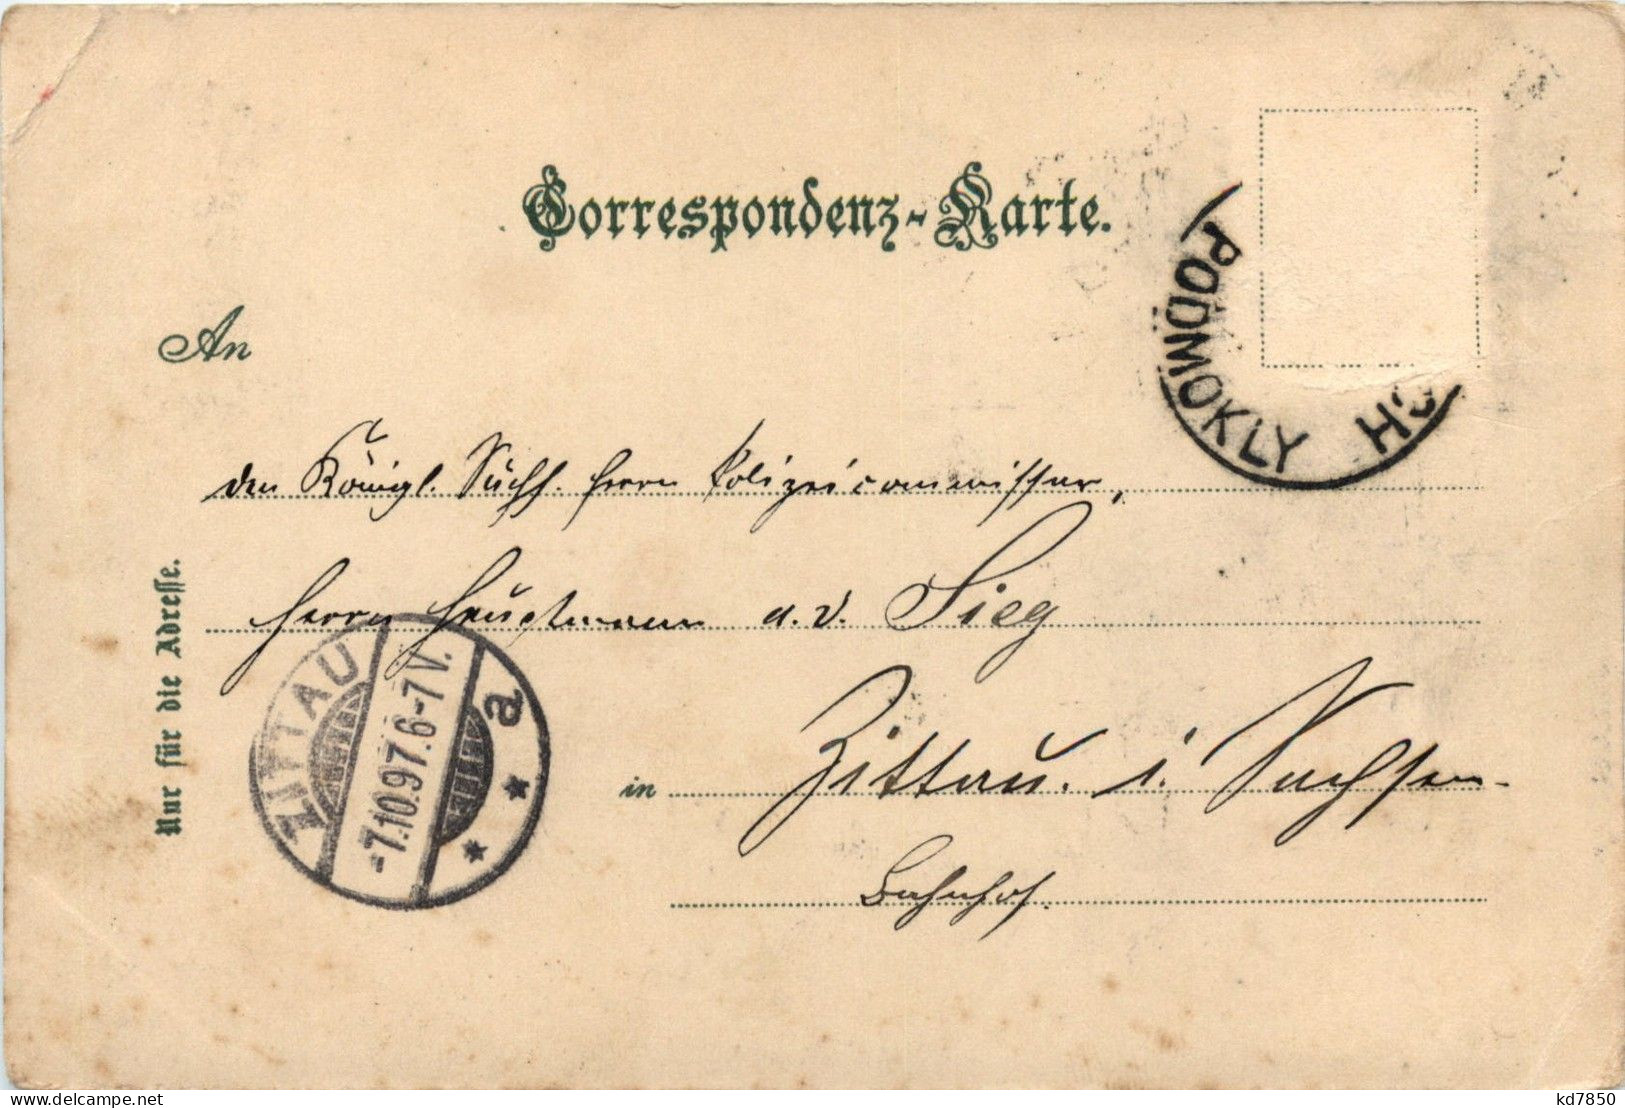 Correspondenz-Karte.
PODMOKLY H
An
den Königl. Sächs. Herrn Polizeicommissar,
Herrn Hauptmann a. D. Sieg
in Zittau. i. Sachsen
Bahnhof.
Nur für die Adresse.
ZITTAU
-7.10.97.6-7V.
* * a
kd7850